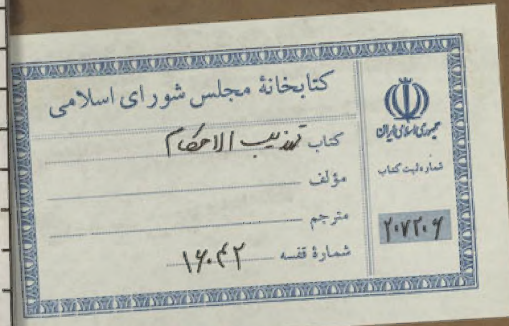 کتابخانهٔ مجلس شورای اسلامی
کتاب تهذیب الاحکام
مؤلف
مترجم
شمارهٔ قفسه ۱۶۰۴۲
جمهوری اسلامی ایران
شماره ثبت کتاب
۲۰۷۲۰۶